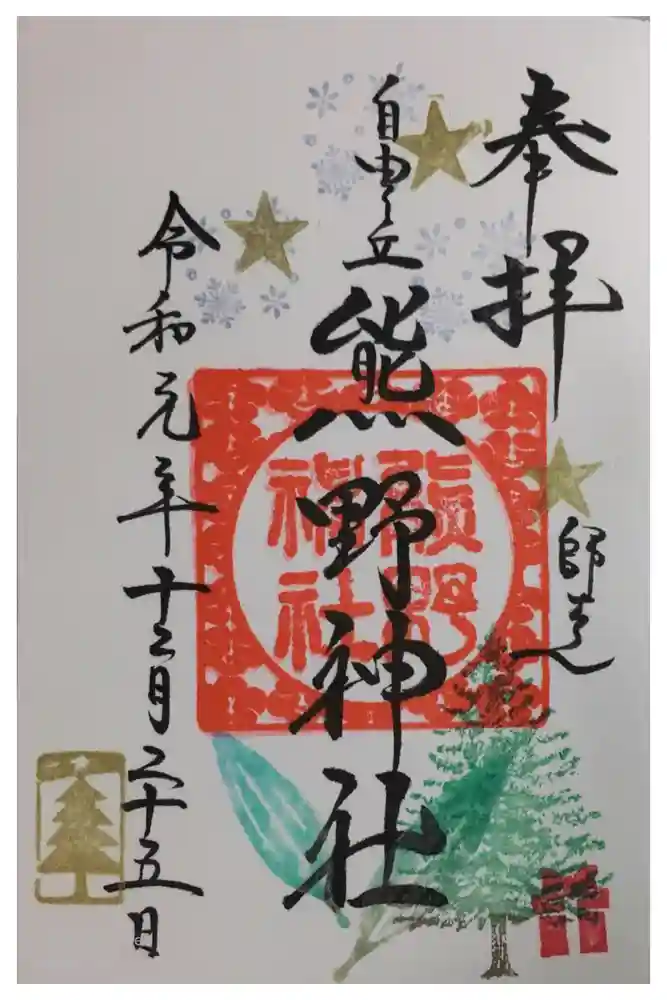 奉拝
師走
自由が丘
熊野神社
熊野神社
令和元年十二月二十五日